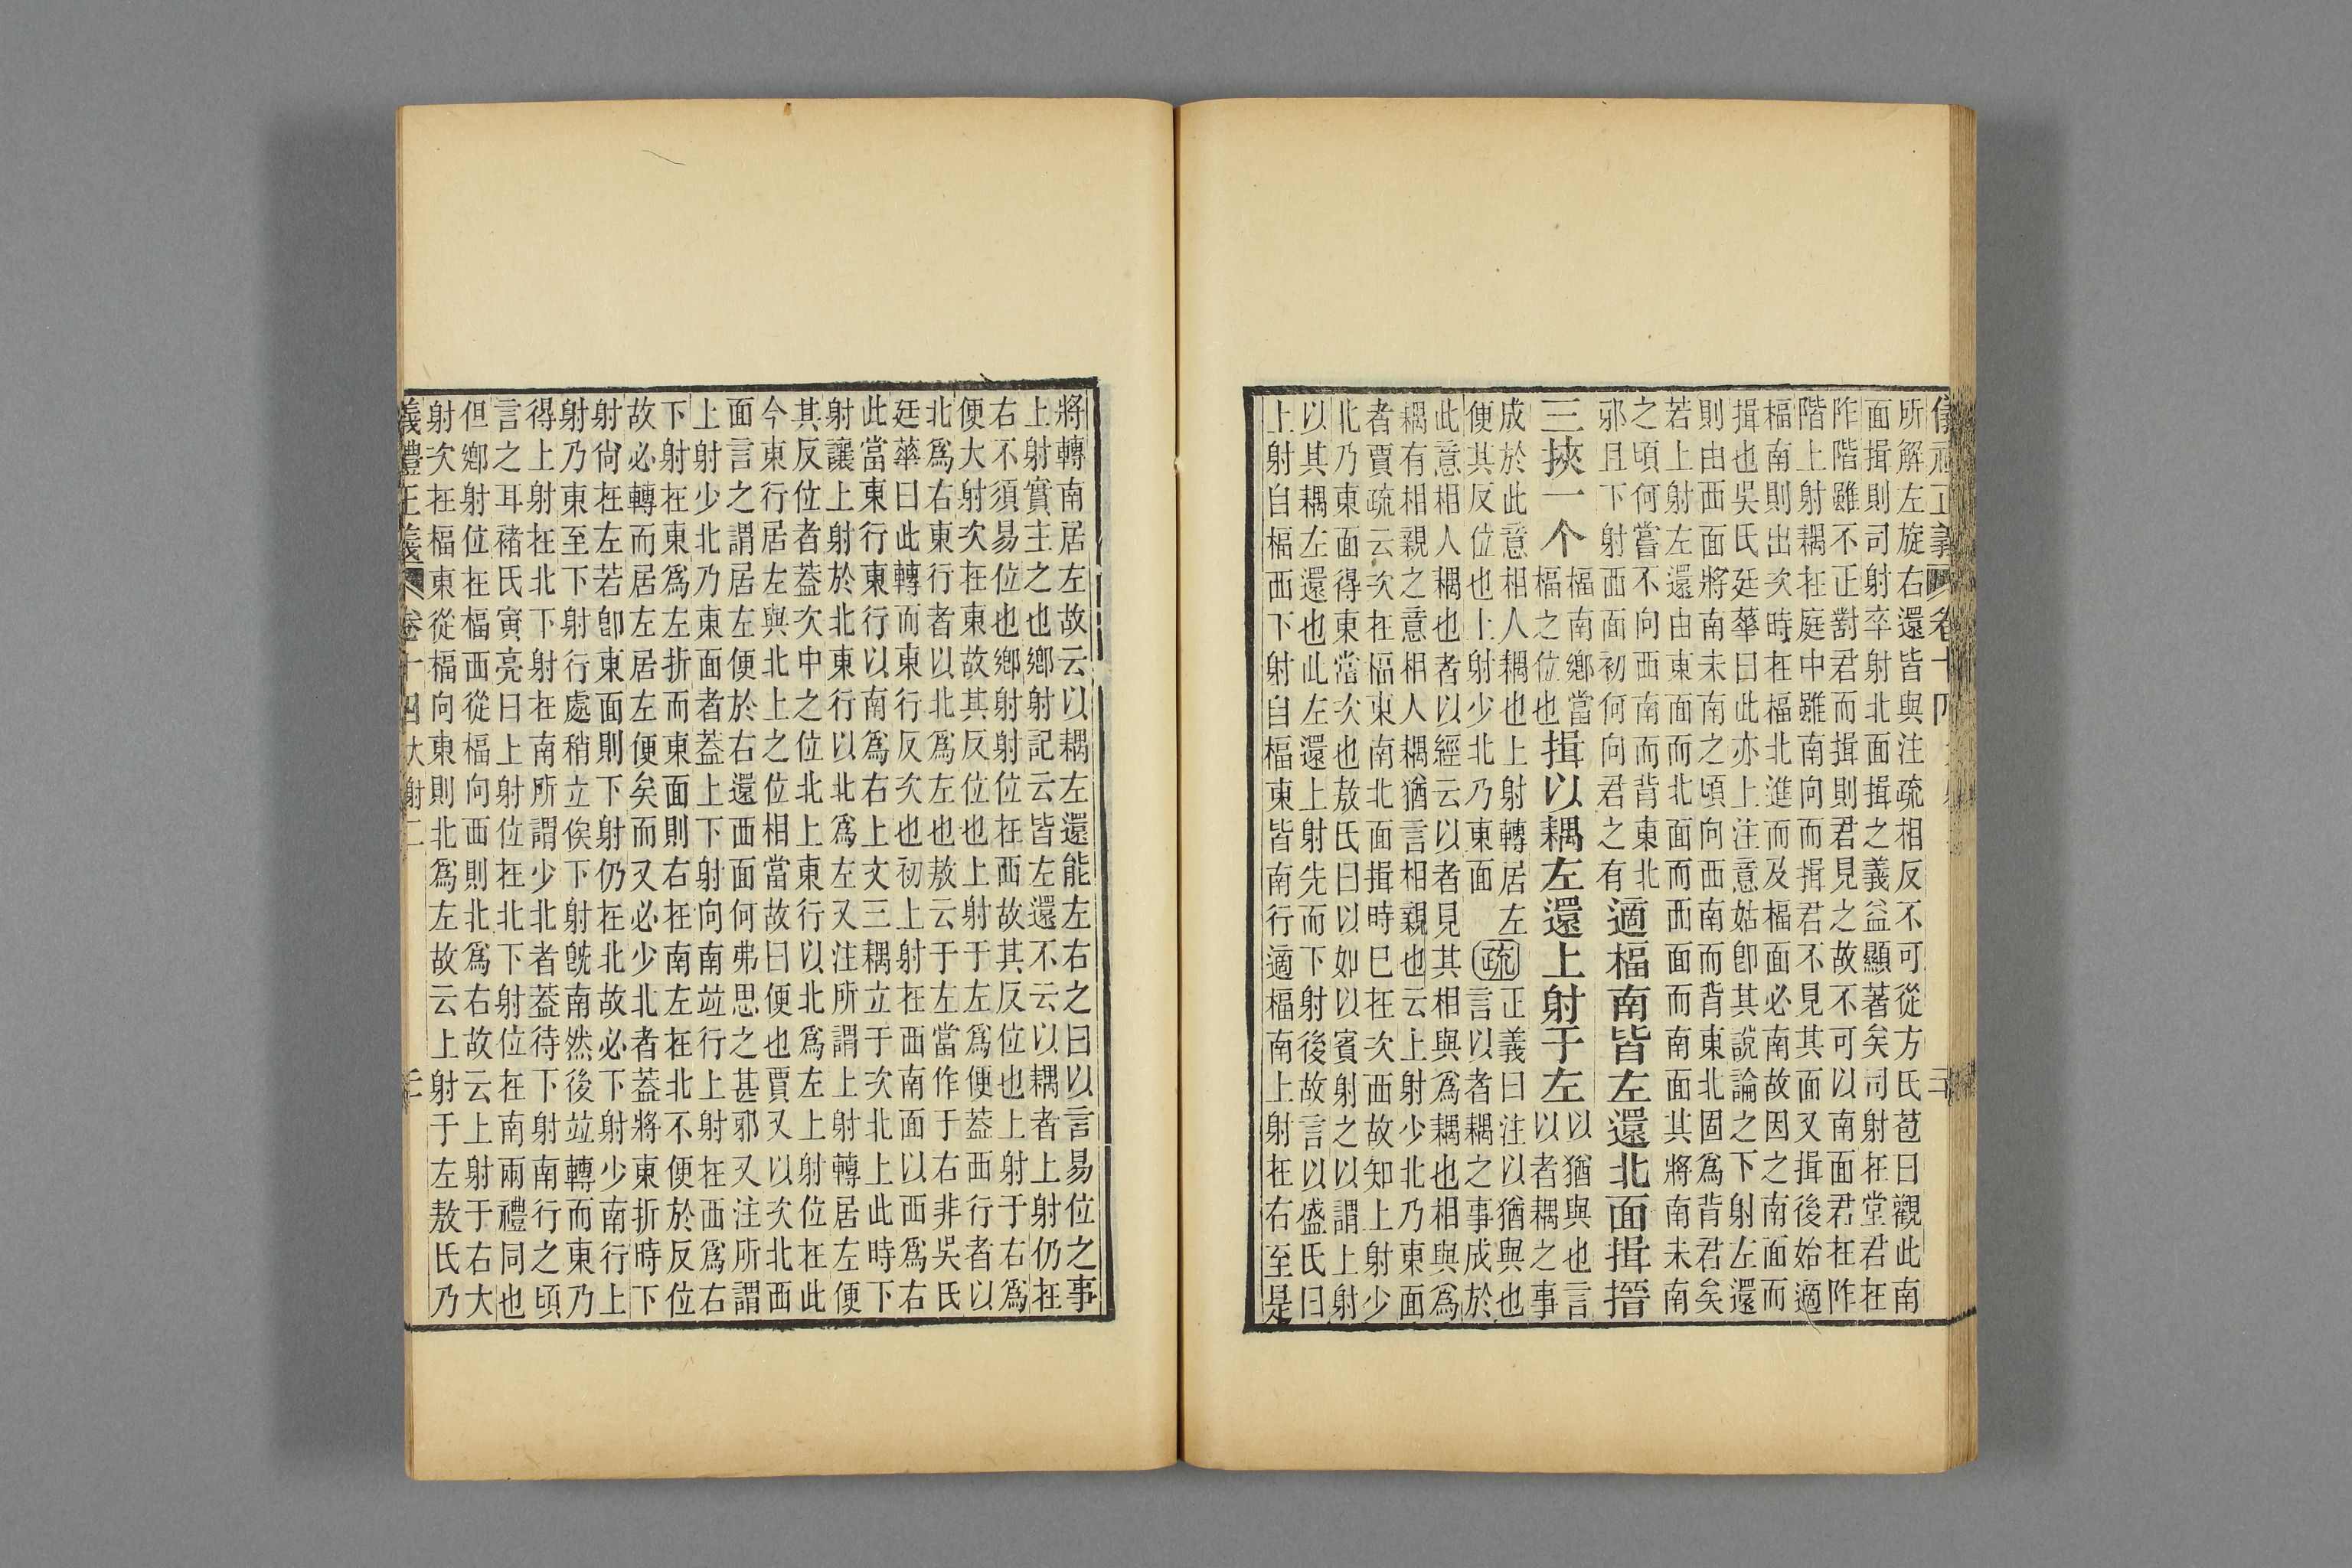 所解左旋右還皆與注疏相反不可從方氏苞曰觀此南
面揖則司射卒射北面揖之義益顯著矣司射在堂君在
阼階雖不正對君而揖則君見之故不可以南面君在阼
階上射耦在庭中雖南向而揖君不見其面又揖後始適
楅南則出次時在楅北進而及楅面必南故因之南面而
揖也吳氏廷華曰此亦上注意姑卽其說論之下射左還
則由西面將南未南之頃向西南而背東北固爲背君矣
若上射左還由東面而北面而西面而南面其將南未南
之頃何嘗不向西南而背東北
邪且下射西面初何向君之有
適楅南皆左還北面揖搢
三挾一个
楅南鄉當
楅之位也
揖以耦左還上射于左
以猶與也言
以者耦之事
成於此意相人耦也上射轉居左
便其反位也上射少北乃東面
疏
正義曰注以猶與也
言以者耦之事成於
此意相人耦也者以經云以者見其相與爲耦也相與爲
耦有相親之意相人耦猶言相親也云上射少北乃東面
者賈疏云次在楅東南北面揖時已在次西故知上射少
北乃東面得東當次也敖氏曰以如以賓射之以謂上射
以其耦左還也此左還上射先而下射後故言以盛氏曰
上射自楅西下射自楅東皆南行適楅南上射在右至是
將轉南居左故云以耦左還能左右之曰以言易位之事
上射實主之也鄉射記云皆左還不云以耦者上射仍在
右不須易位也鄉射射位在西故其反位也上射于右爲
便大射次在東故其反位也上射于左爲便蓋西行者以
北爲右東行者以北爲左也敖云于左當作于右非吳氏
廷華曰此轉而東行反次也初上射在西南面以西爲右
此當東行東行以南爲右上文三耦立于次北上此時下
射讓上射於北東行以北爲左又注所謂上射轉居左便
其反位者蓋次中之位北上東行以北爲左上射位在此
今東行居左與北上之位相當故曰便也賈又以次北西
面言之謂居左便於右還西面何弗思之甚邪又注所謂
上射少北乃東面者蓋上下射向南竝行上射在西爲右
下射在東爲左折而東面則右在南左在北不便於反位
故必轉而居左居左便矣而又必少北者蓋將東折時下
射尙在左若卽東面則下射仍在北故必下射少南行上
射乃東至下射行處稍立俟下射旣南然後竝轉而東乃
得上射在北下射在南所謂少北者蓋待下射南行之頃
言之耳褚氏寅亮曰上射位在北下射位在南兩禮同也
但鄉射位在楅西從楅向西則北爲右故云上射于右大
射次在楅東從楅向東則北爲左故云上射于左敖氏乃
義禮正義 卷十四 大射二